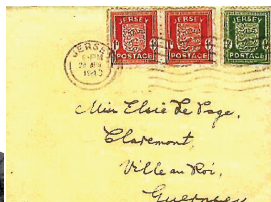 JERSEY JERSEY JERSEY
POSTAGE POSTAGE POSTAGE
JERSEY
PM
Miss Elsie Le Page,
Claremont,
Ville au Roi,
Guernsey